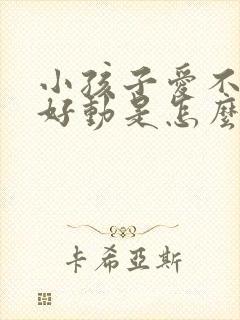 小孩子愛不
好動是怎麼
卡希亞斯